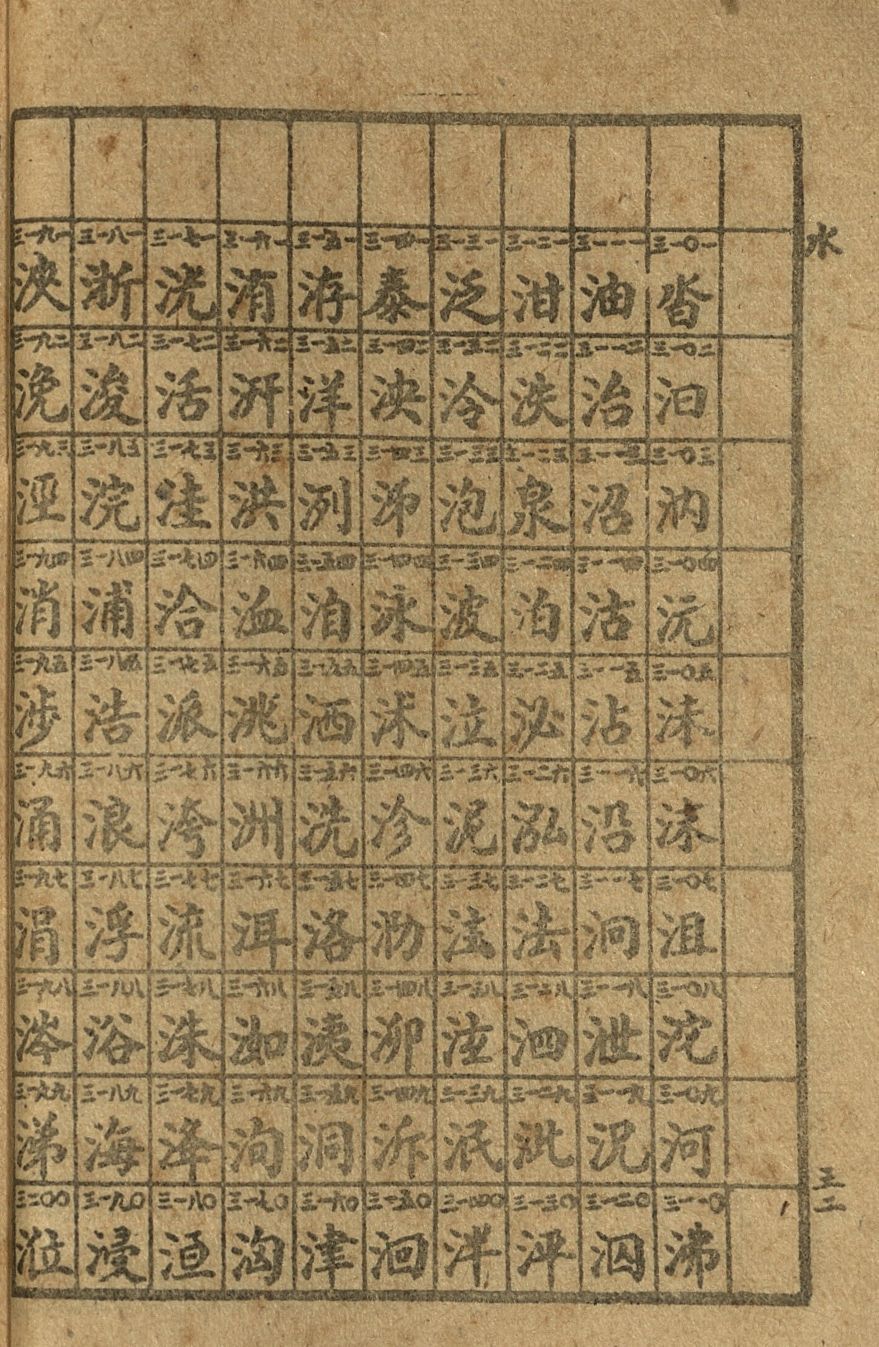 水
三一〇一 沓 三一〇二 汩 三一〇三 汭 三一〇四 沅 三一〇五 沬 三一〇六 沫 三一〇七 沮 三一〇八 沱 三一〇九 河 三一一〇 沸
三一一一 油 三一一二 治 三一一三 沼 三一一四 沽 三一一五 沾 三一一六 沿 三一一七 泂 三一一八 泄 三一一九 況 三一二〇 泅
三一二一 泔 三一二二 泆 三一二三 泉 三一二四 泊 三一二五 泌 三一二六 泓 三一二七 法 三一二八 泗 三一二九 泚 三一三〇 泙
三一三一 泛 三一三二 泠 三一三三 泡 三一三四 波 三一三五 泣 三一三六 泥 三一三七 泫 三一三八 注 三一三九 泯 三一四〇 泮
三一四一 泰 三一四二 泱 三一四三 泲 三一四四 泳 三一四五 沭 三一四六 沴 三一四七 泐 三一四八 泖 三一四九 泝 三一五〇 洄
三一五一 洊 三一五二 洋 三一五三 洌 三一五四 洎 三一五五 洒 三一五六 洗 三一五七 洛 三一五八 洟 三一五九 洞 三一六〇 津
三一六一 洧 三一六二 汧 三一六三 洪 三一六四 洫 三一六五 洮 三一六六 洲 三一六七 洱 三一六八 洳 三一六九 洵 三一七〇 洶
三一七一 洸 三一七二 活 三一七三 洼 三一七四 洽 三一七五 派 三一七六 洿 三一七七 流 三一七八 洙 三一七九 洚 三一八〇 洹
三一八一 浙 三一八二 浚 三一八三 浣 三一八四 浦 三一八五 浩 三一八六 浪 三一八七 浮 三一八八 浴 三一八九 海 三一九〇 浸
三一九一 浹 三一九二 浼 三一九三 涇 三一九四 消 三一九五 涉 三一九六 涌 三一九七 涓 三一九八 涔 三一九九 涕 三二〇〇 涖
三二